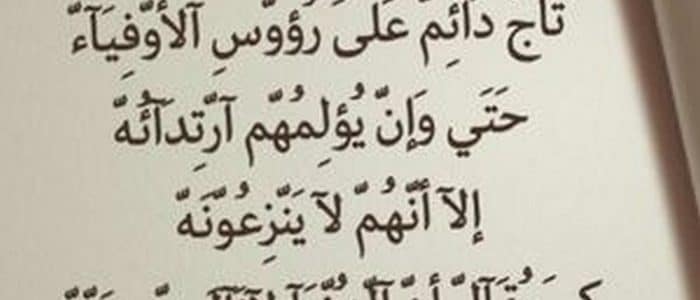 تَاجٌ دَائِمّ عَلَىَ رُؤوّسِ آلأوّفِيَآءّ
حَتَي وَإنّ يُؤلِمهُمّ آرّتِدآئُهّ
إلآ أنّهُمّ لآ يَنّزِعوُنَهّ